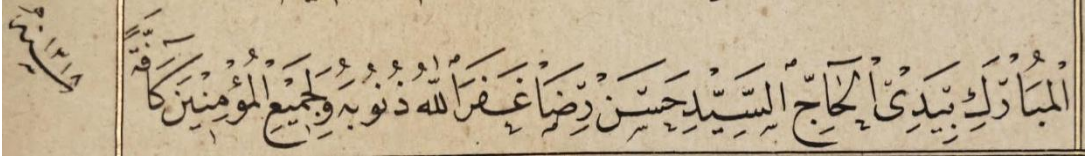 الْمُبَارَكِ بِيَدِىّ الْحَآجِّ السَّيِّدِ حَسَنْ رِضَا غَفَرَ اللّٰهُ ذُنُوبَهُ وَلِجَمِيْعِ الْمُؤْمِنِيْنَ كَآفَّةً
سنة